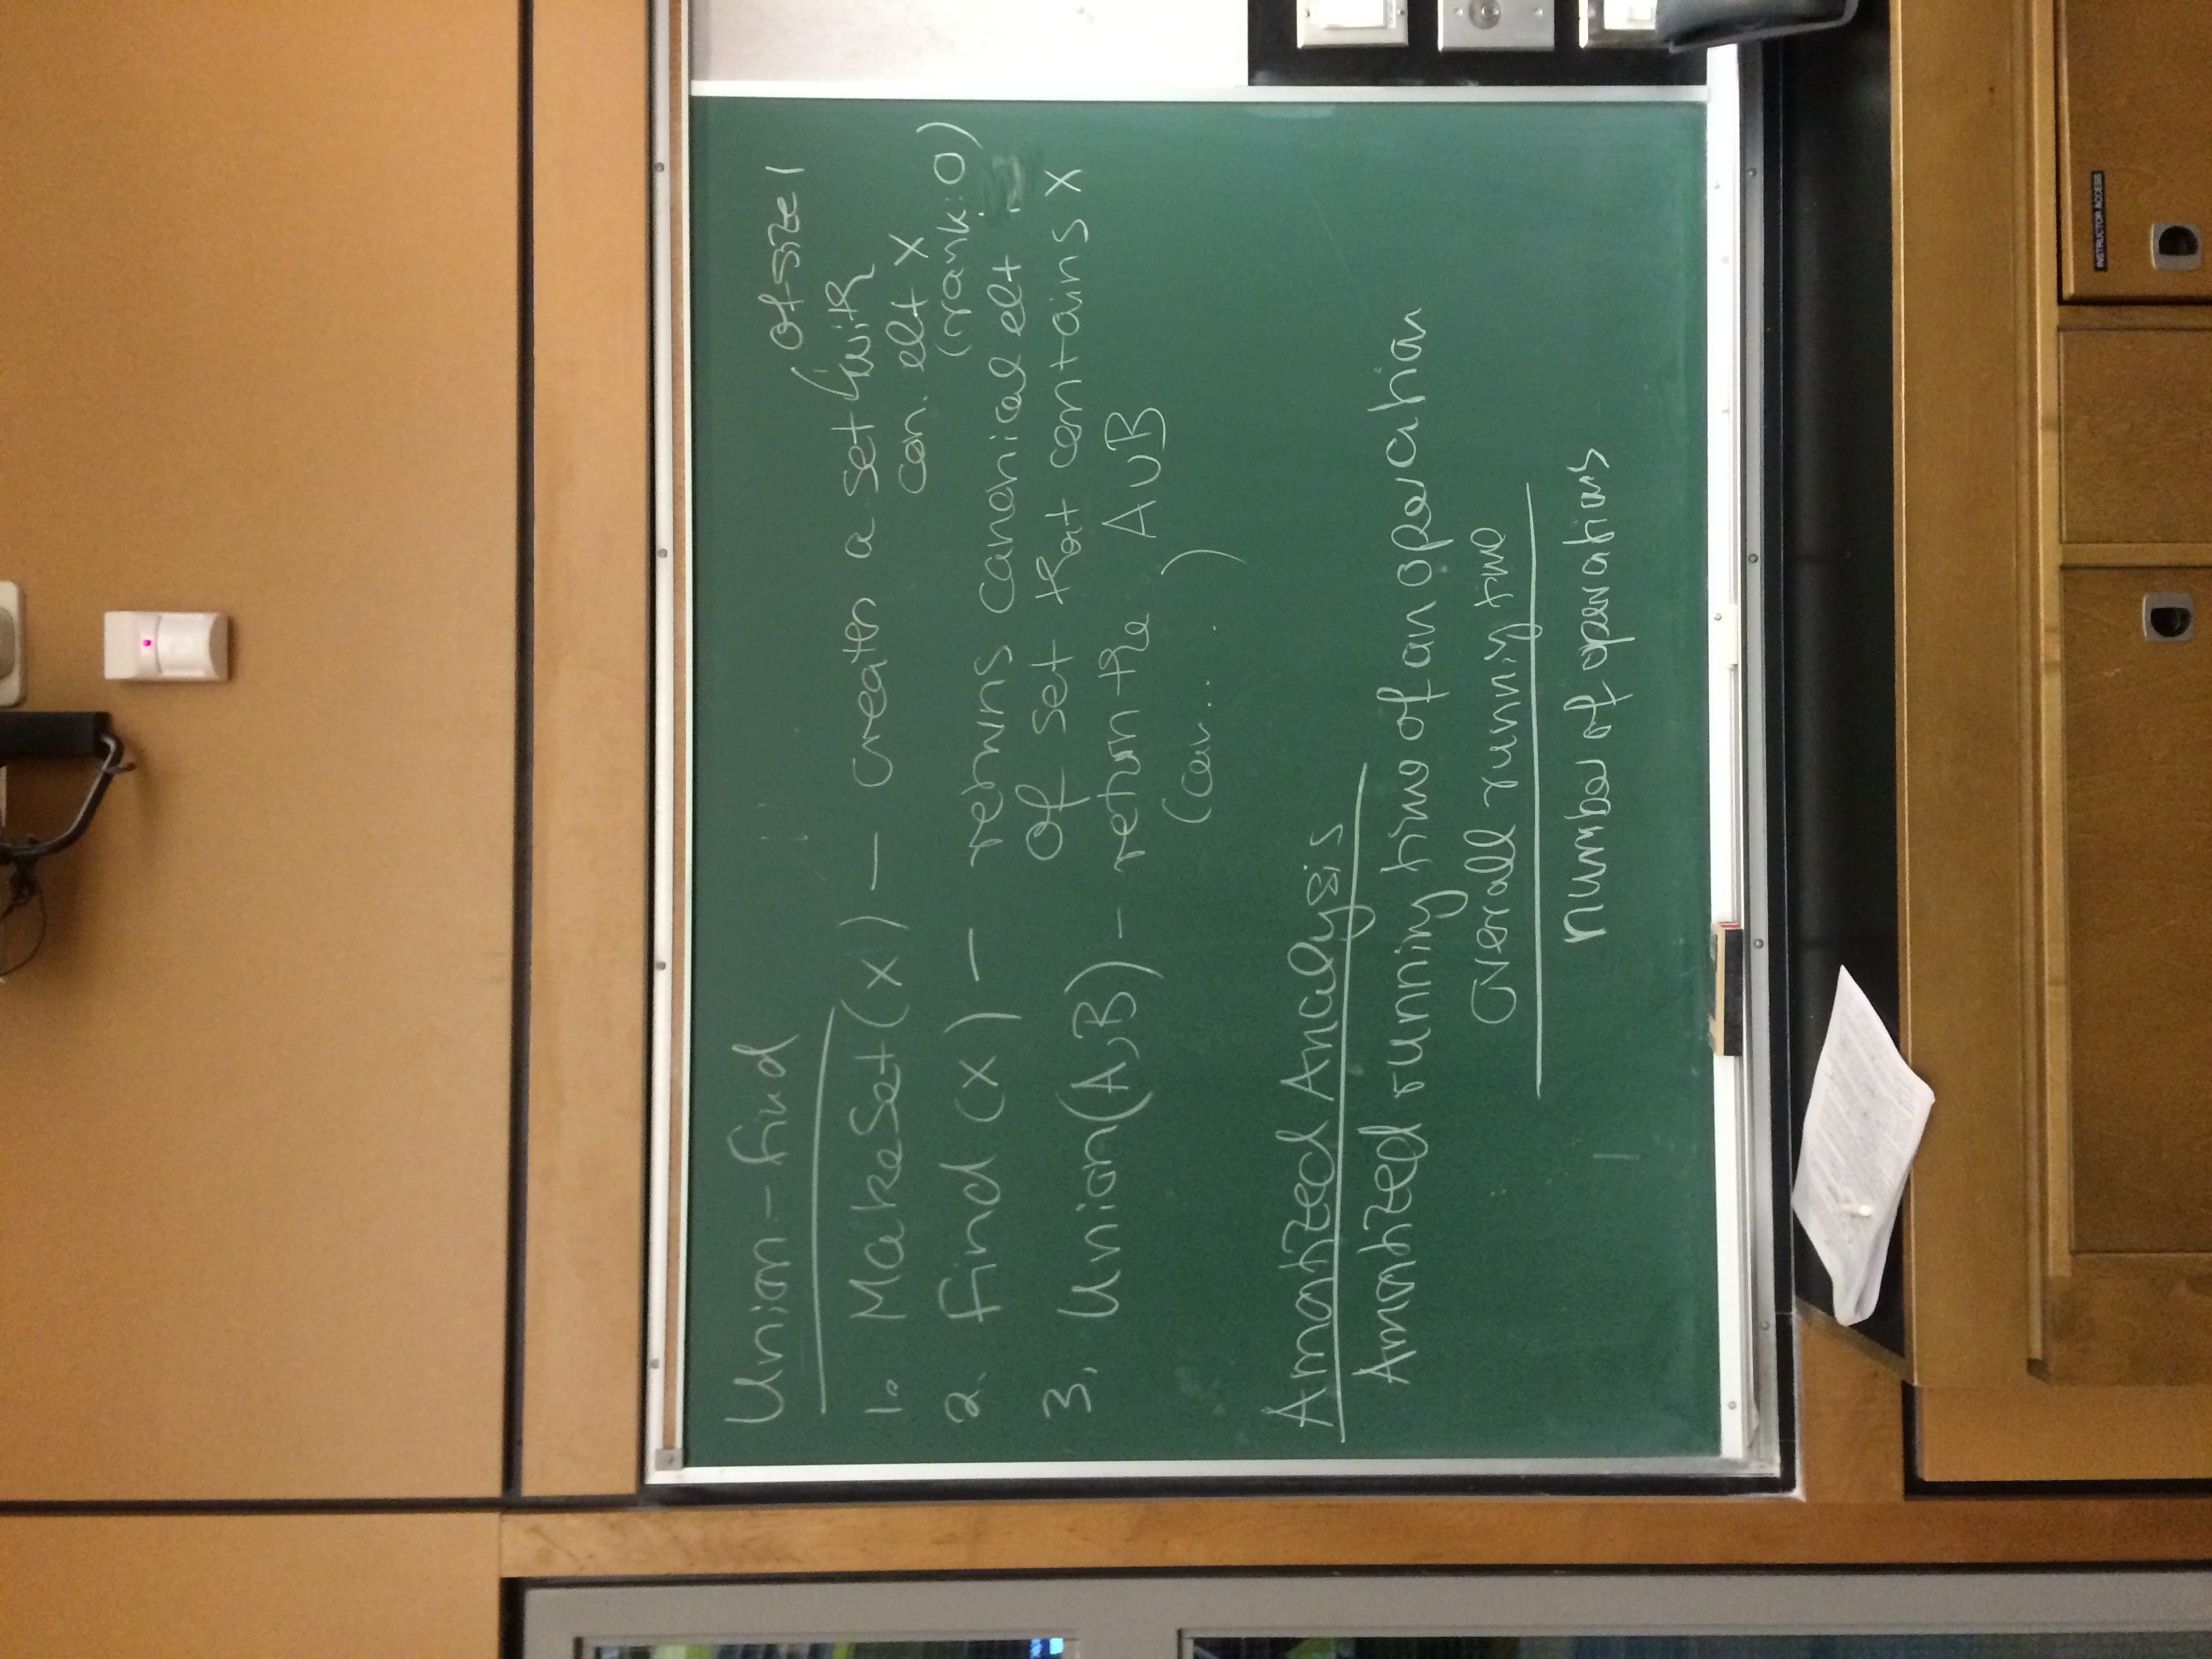 Union-Find
of size 1
1. MakeSet(x) — creates a set with
can. elt x
(rank: 0)
2. Find (x) — returns canonical elt
of set that contains x
3. Union(A,B) — return the A∪B
(can.. . )
Amortized Analysis
Amortized running time of an operation
overall running time
number of operations
INSTRUCTOR ACCESS